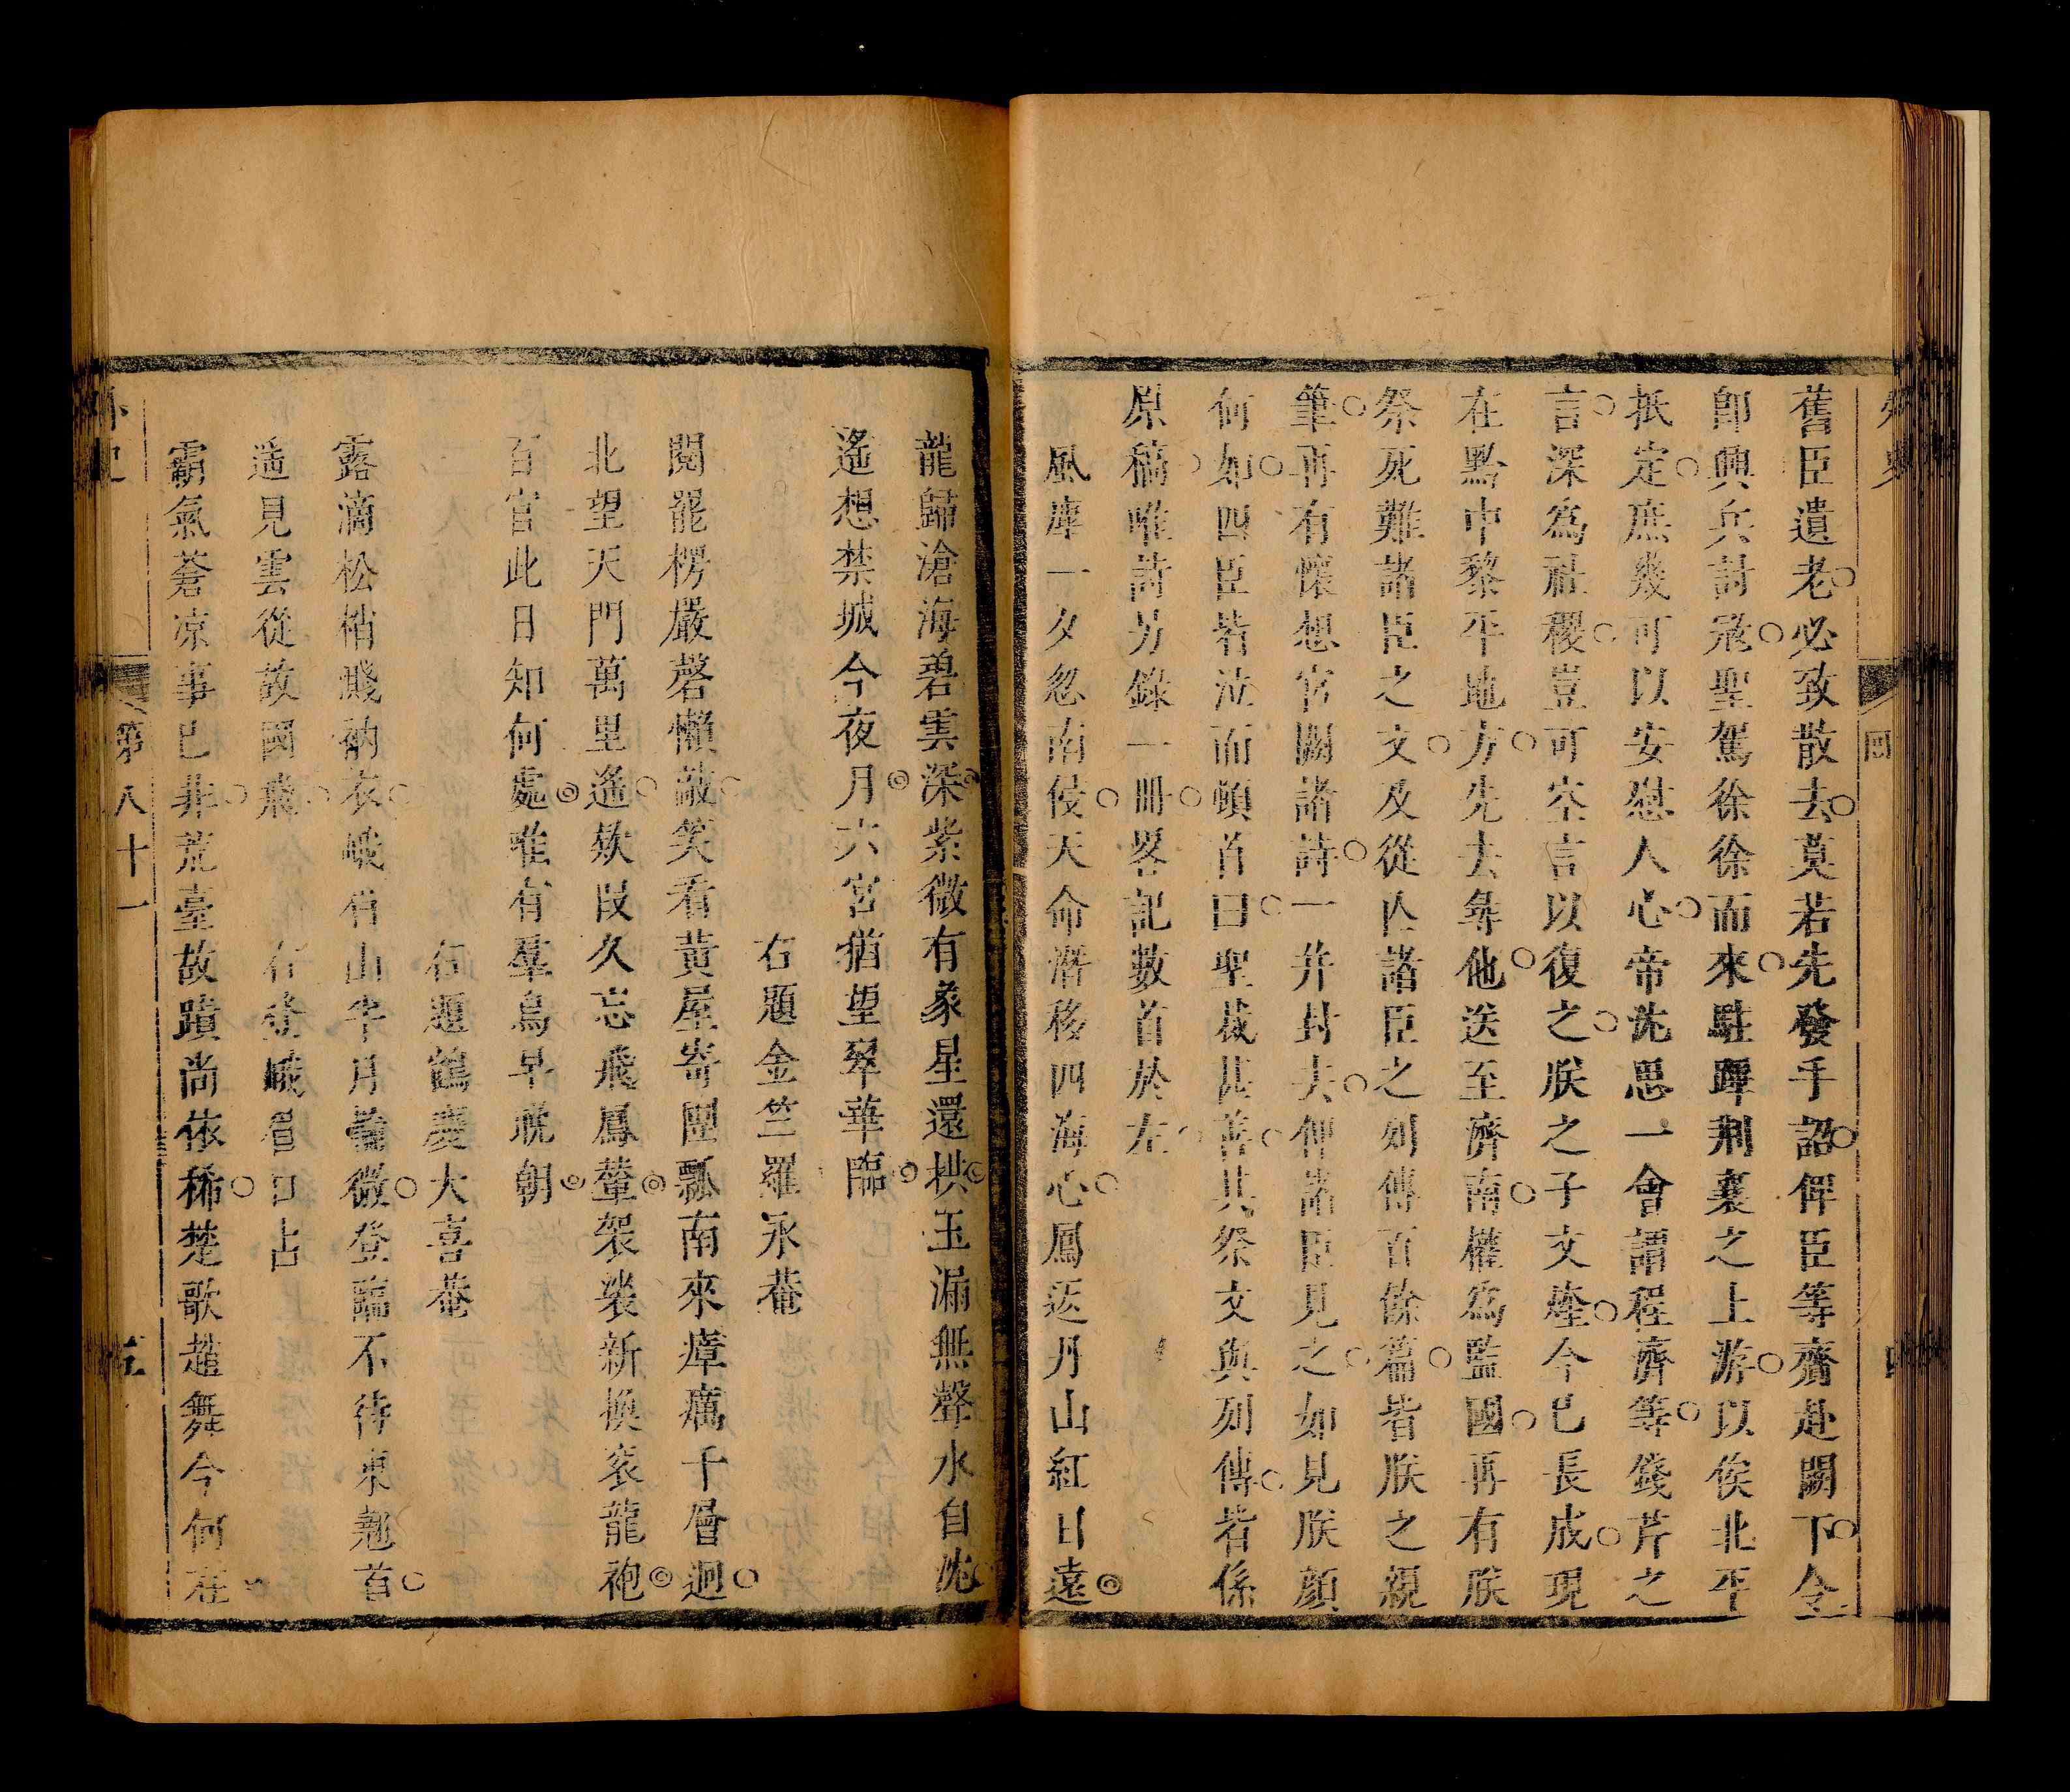 舊臣遺老必致散去莫若先發手詔俾臣等齎赴闕下令
卽興兵討飛聖駕徐徐而來駐蹕荆襄之上游以俟北平
抵定庶幾可以安慰人心帝沈思一會謂程濟等錢芹之
言深為社稷豈可空言以復之朕之子文煃今已長成現
在黔中黎平地方先去尋他送至濟南權為監國再有朕
祭死難諸臣之文及從亡諸臣之列傳百餘篇皆朕之親
筆再有懷想宮闕諸詩一并封去俾諸臣見之如見朕顔
何如四臣皆泣而頓首曰聖裁甚善其祭文與列傳皆係
原稿唯詩另錄一冊畧記數首於左
風塵一夕忽南侵天命潛移四海心鳳返丹山紅日遠
龍歸滄海碧雲深紫微有象星還拱玉漏無聲水自沈
遙想禁城今夜月六宮猶望翠華臨
右題金竺羅永菴
閱罷楞嚴磬懶敲笑看黃屋寄團瓢南來瘴癘千層迥
北望天門萬里遙欵段久忘飛鳳輦袈裟新換衮龍袍
百官此日知何處唯有羣烏早晚朝
右題鶴慶大喜菴
露滴松梢濺衲衣峨眉山半月輪微登臨不待東翹首
遥見雲從故國飛
右登峨眉口占
霸氣蒼凉事已非荒臺故蹟尚依稀楚歌趙舞今何在
外史
第八十一
五